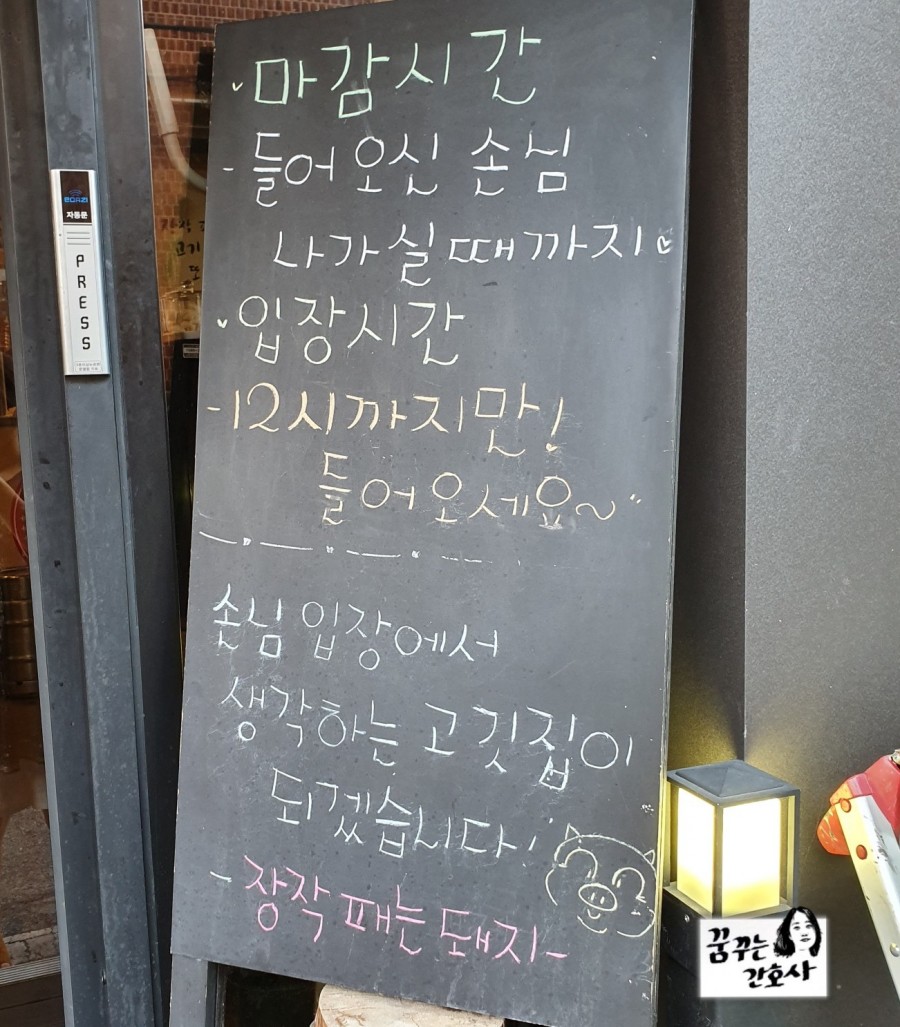 마감시간
- 들어오신 손님
나가실때까지♡
입장시간
- 12시까지만!
들어오세요~
손님입장에서
생각하는 고깃집이
되겠습니다!
- 장작 패는 돼지 -
자동문
PRESS
꿈꾸는
간호사